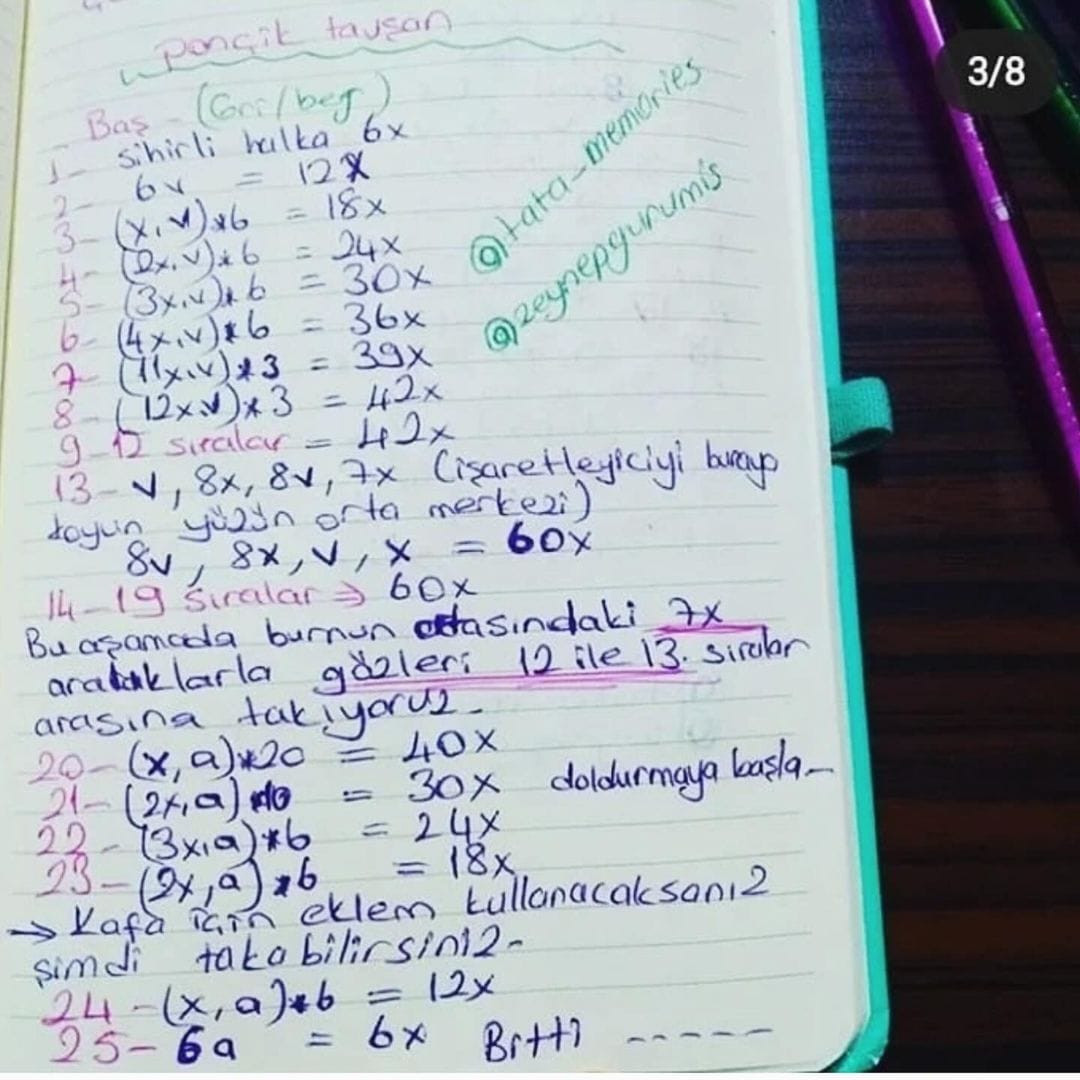 ponçik tavşan
Baş - (Gri/bej)
1- sihirli halka 6x
2- 6v = 12x
3- (x,v)*6 = 18x
4- (2x,v)*6 = 24x
5- (3x,v)*6 = 30x
6- (4x,v)*6 = 36x
7- (11x,v)*3 = 39x
8- (12x,v)*3 = 42x
9-12 sıralar = 42x
13- v, 8x, 8v, 7x (işaretleyiciyi buraya
koyun yüzün orta merkezi)
8v, 8x, v, x = 60x
14-19 sıralar → 60x
Bu aşamada burnun ortasındaki 7x
aralıklarla gözleri 12 ile 13. sıralar
arasına takıyoruz.
20- (x,a)*20 = 40x
21- (2x,a)*10 = 30x doldurmaya başla-
22- (3x,a)*6 = 24x
23- (2x,a)*6 = 18x
→ Kafa için eklem kullanacaksanız
şimdi takabilirsiniz-
24- (x,a)*6 = 12x
25- 6a = 6x Bitti -----
@tata_memories
@zeynepgurumis
3/8